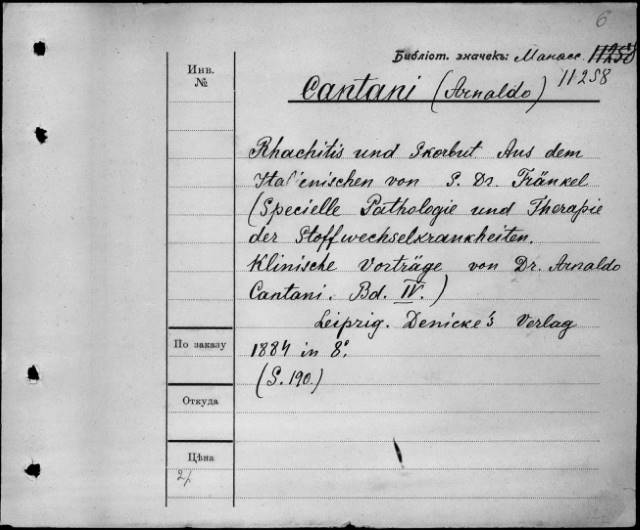 6
Библіот. значекъ: Манасс. 11258
11258
Инв.
№
Cantani (Arnaldo)
Rhachitis und Skorbut. Aus dem
Italienischen von S. Dr. Fränkel
(Specielle Pathologie und Therapie
der Stoffwechselkrankheiten.
Klinische Vorträge von Dr. Arnaldo
Cantani. Bd. IV.)
Leipzig. Denicke's Verlag
По заказу
1884 in 8°.
(S. 190.)
Откуда
Цѣна